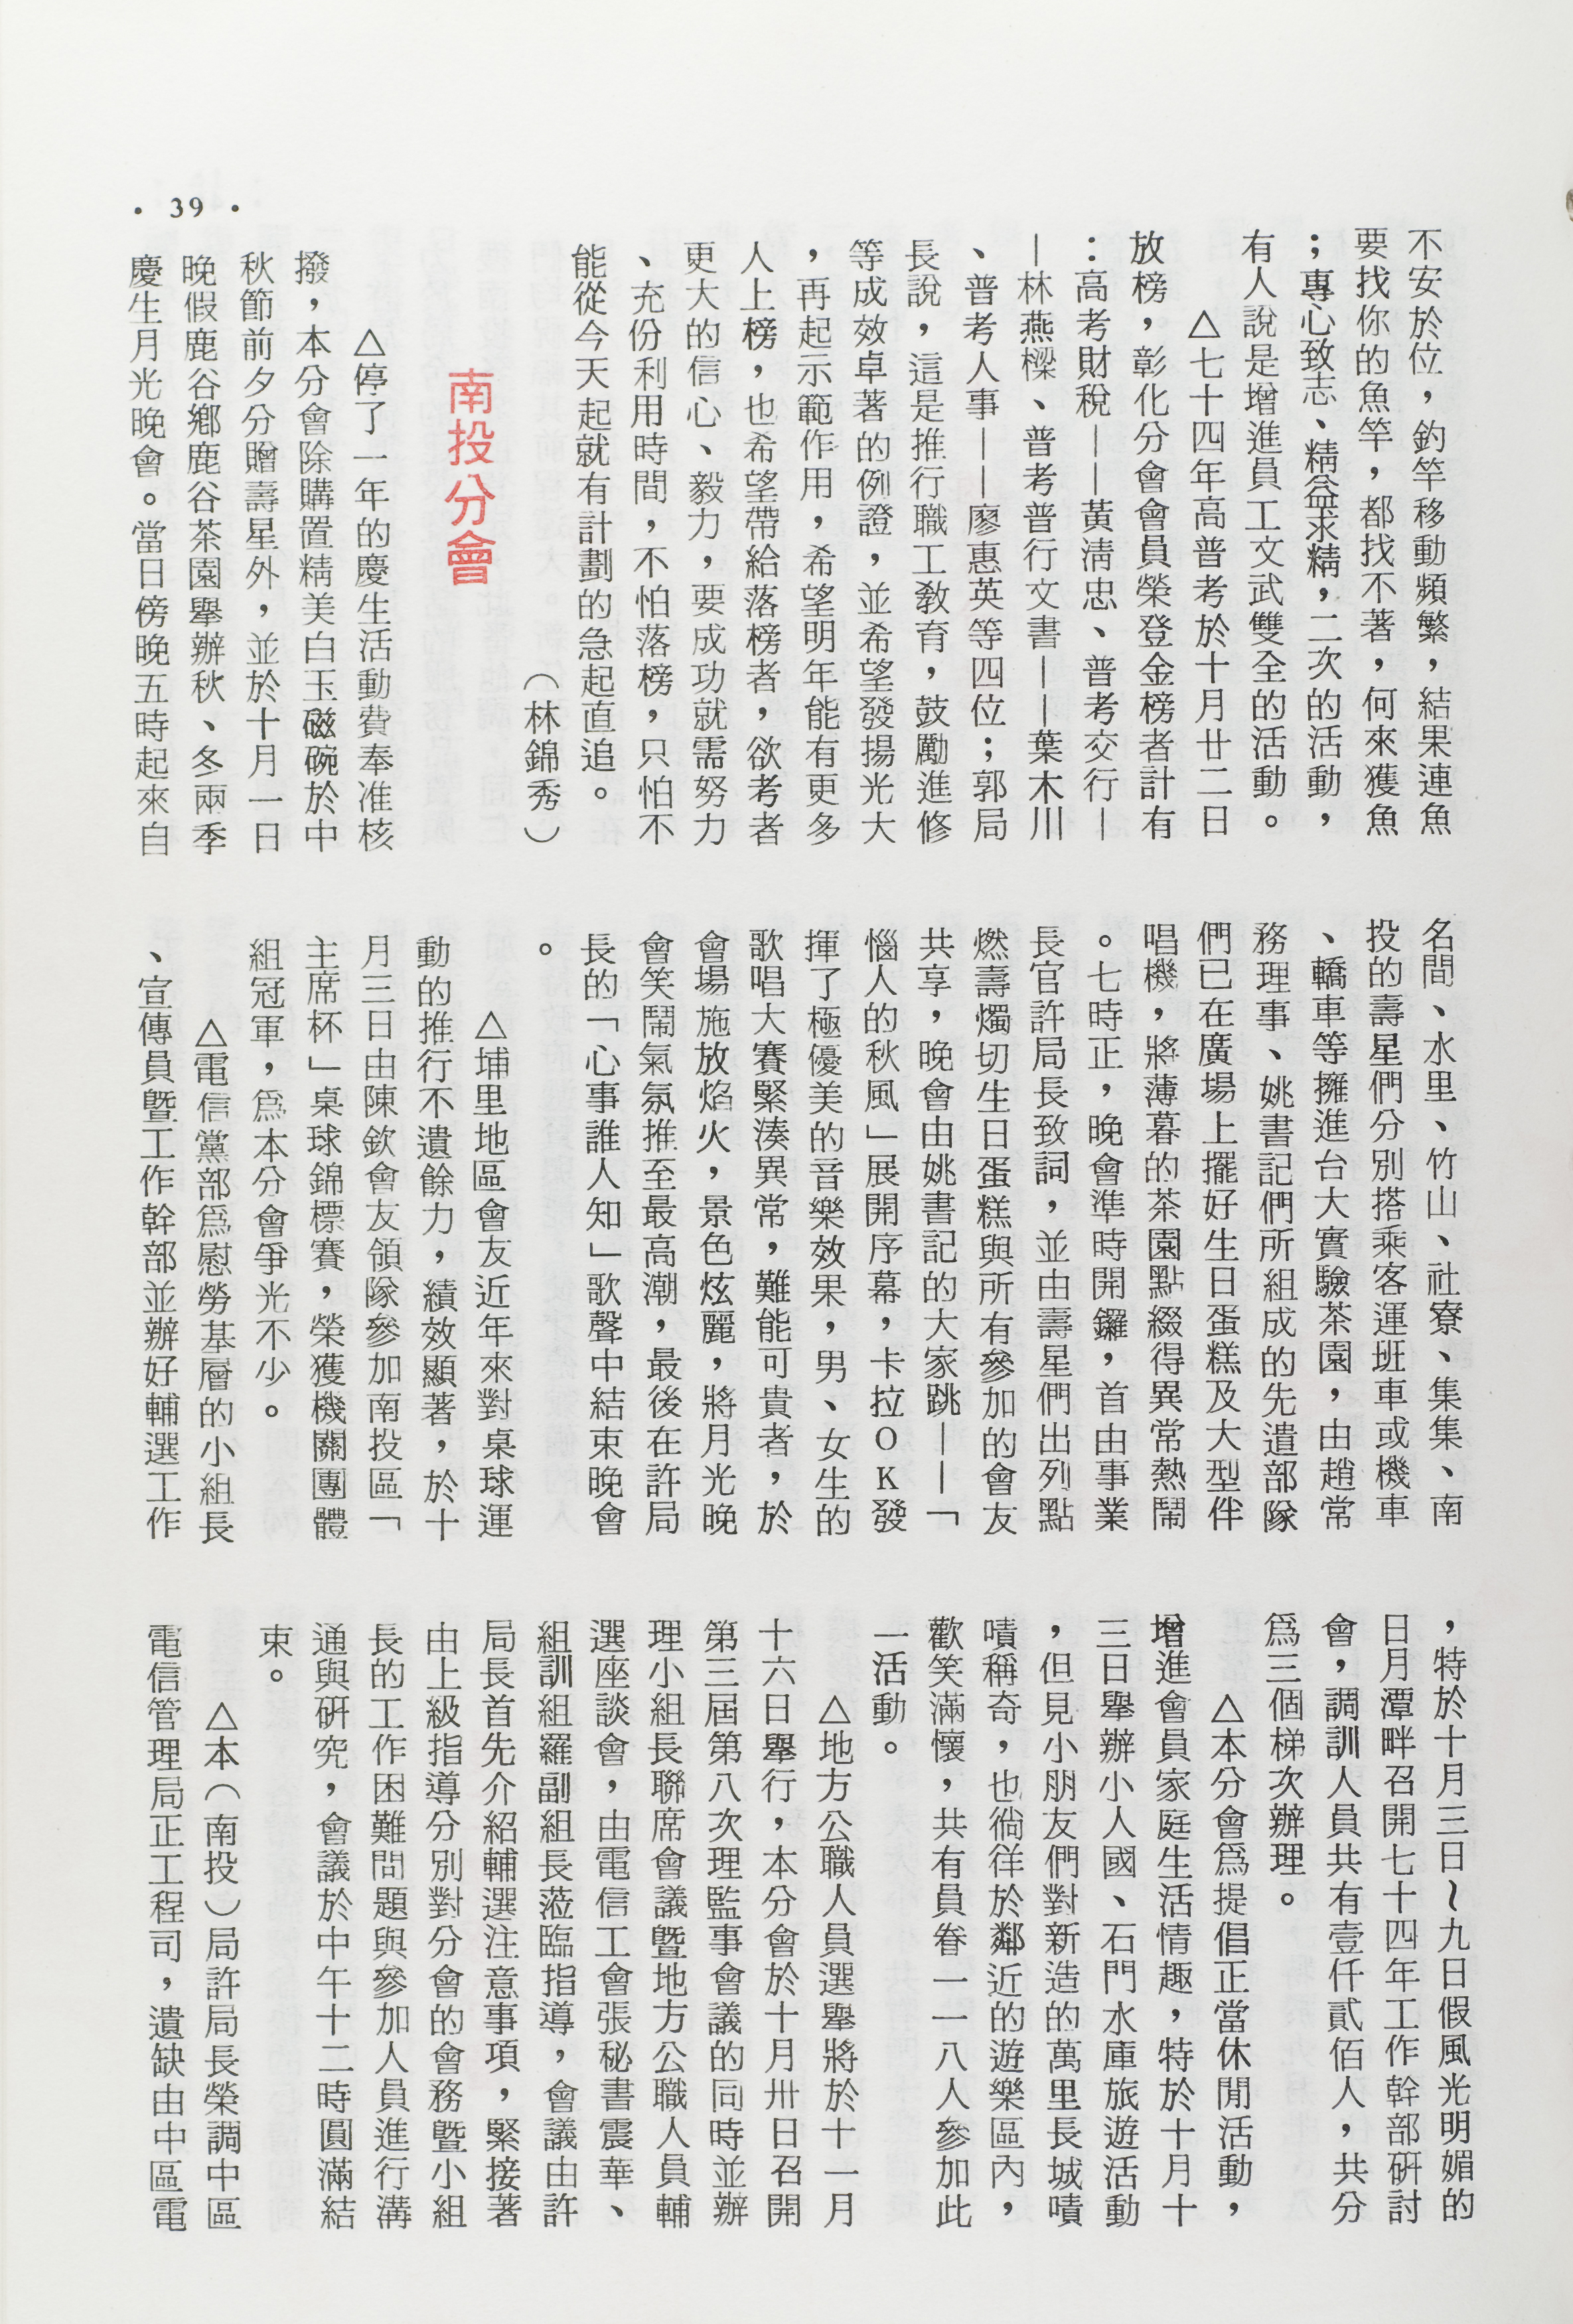 • 39 •
不安於位，釣竿移動頻繁，結果連魚
要找你的魚竿，都找不著，何來獲魚
；專心致志、精益求精，二次的活動，
有人說是增進員工文武雙全的活動。
△七十四年高普考於十月廿二日
放榜，彰化分會會員榮登金榜者計有
：高考財稅——黃淸忠、普考交行—
—林燕樑、普考普行文書——葉木川
、普考人事——廖惠英等四位；郭局
長說，這是推行職工敎育，鼓勵進修
等成效卓著的例證，並希望發揚光大
，再起示範作用，希望明年能有更多
人上榜，也希望帶給落榜者，欲考者
更大的信心、毅力，要成功就需努力
、充份利用時間，不怕落榜，只怕不
能從今天起就有計劃的急起直追。
（林錦秀）
南投分會
△停了一年的慶生活動費奉准核
撥，本分會除購置精美白玉磁碗於中
秋節前夕分贈壽星外，並於十月一日
晚假鹿谷鄉鹿谷茶園舉辦秋、冬兩季
慶生月光晚會。當日傍晚五時起來自
名間、水里、竹山、社寮、集集、南
投的壽星們分別搭乘客運班車或機車
、轎車等擁進台大實驗茶園，由趙常
務理事、姚書記們所組成的先遣部隊
們已在廣場上擺好生日蛋糕及大型伴
唱機，將薄暮的茶園點綴得異常熱鬧
。七時正，晚會準時開鑼，首由事業
長官許局長致詞，並由壽星們出列點
燃壽燭切生日蛋糕與所有參加的會友
共享，晚會由姚書記的大家跳——「
惱人的秋風」展開序幕，卡拉OK發
揮了極優美的音樂效果，男、女生的
歌唱大賽緊湊異常，難能可貴者，於
會場施放焰火，景色炫麗，將月光晚
會笑鬧氣氛推至最高潮，最後在許局
長的「心事誰人知」歌聲中結束晚會
。
△埔里地區會友近年來對桌球運
動的推行不遺餘力，績效顯著，於十
月三日由陳欽會友領隊參加南投區「
主席杯」桌球錦標賽，榮獲機關團體
組冠軍，爲本分會爭光不少。
△電信黨部爲慰勞基層的小組長
、宣傳員曁工作幹部並辦好輔選工作
，特於十月三日～九日假風光明媚的
日月潭畔召開七十四年工作幹部硏討
會，調訓人員共有壹仟貳佰人，共分
爲三個梯次辦理。
△本分會爲提倡正當休閒活動，
增進會員家庭生活情趣，特於十月十
三日舉辦小人國、石門水庫旅遊活動
，但見小朋友們對新造的萬里長城嘖
嘖稱奇，也徜徉於鄰近的遊樂區內，
歡笑滿懷，共有員眷一一八人參加此
一活動。
△地方公職人員選舉將於十一月
十六日舉行，本分會於十月卅日召開
第三屆第八次理監事會議的同時並辦
理小組長聯席會議曁地方公職人員輔
選座談會，由電信工會張秘書震華、
組訓組羅副組長蒞臨指導，會議由許
局長首先介紹輔選注意事項，緊接著
由上級指導分別對分會的會務曁小組
長的工作困難問題與參加人員進行溝
通與硏究，會議於中午十二時圓滿結
束。
△本（南投）局許局長榮調中區
電信管理局正工程司，遺缺由中區電